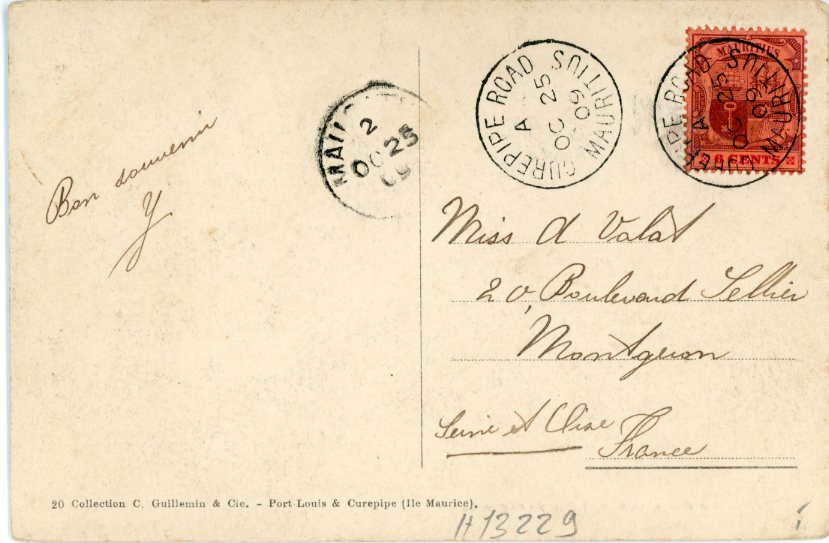 MAURITIUS
6 CENTS
CUREPIPE ROAD
A
OC 25
09
MAURITIUS
CUREPIPE ROAD
A
OC 25
09
MAURITIUS
2
OC 25
09
Bon souvenir
Y
Miss d Valat
20, Boulevard Sellier
Montgeron
Seine et Oise
France
20 Collection C. Guillemin & Cie. - Port-Louis & Curepipe (Ile Maurice).
H13229